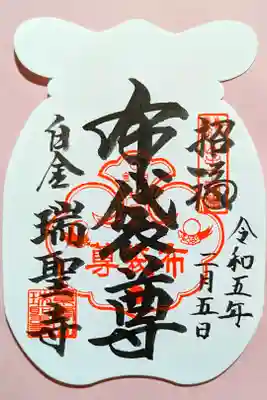 招福
令和五年
二月五日
布袋尊
布袋尊
白金 瑞聖寺